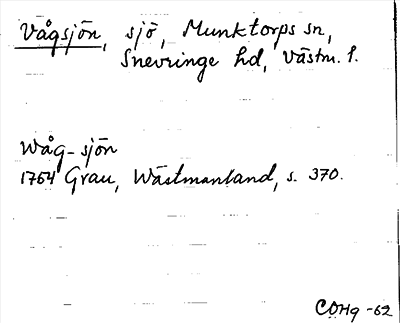 Vågsjön, sjö, Munktorps sn,
Snevringe hd, Västm. l.
Wåg-sjön
1754 Grau, Wästmanland, s. 370.
COHg -62